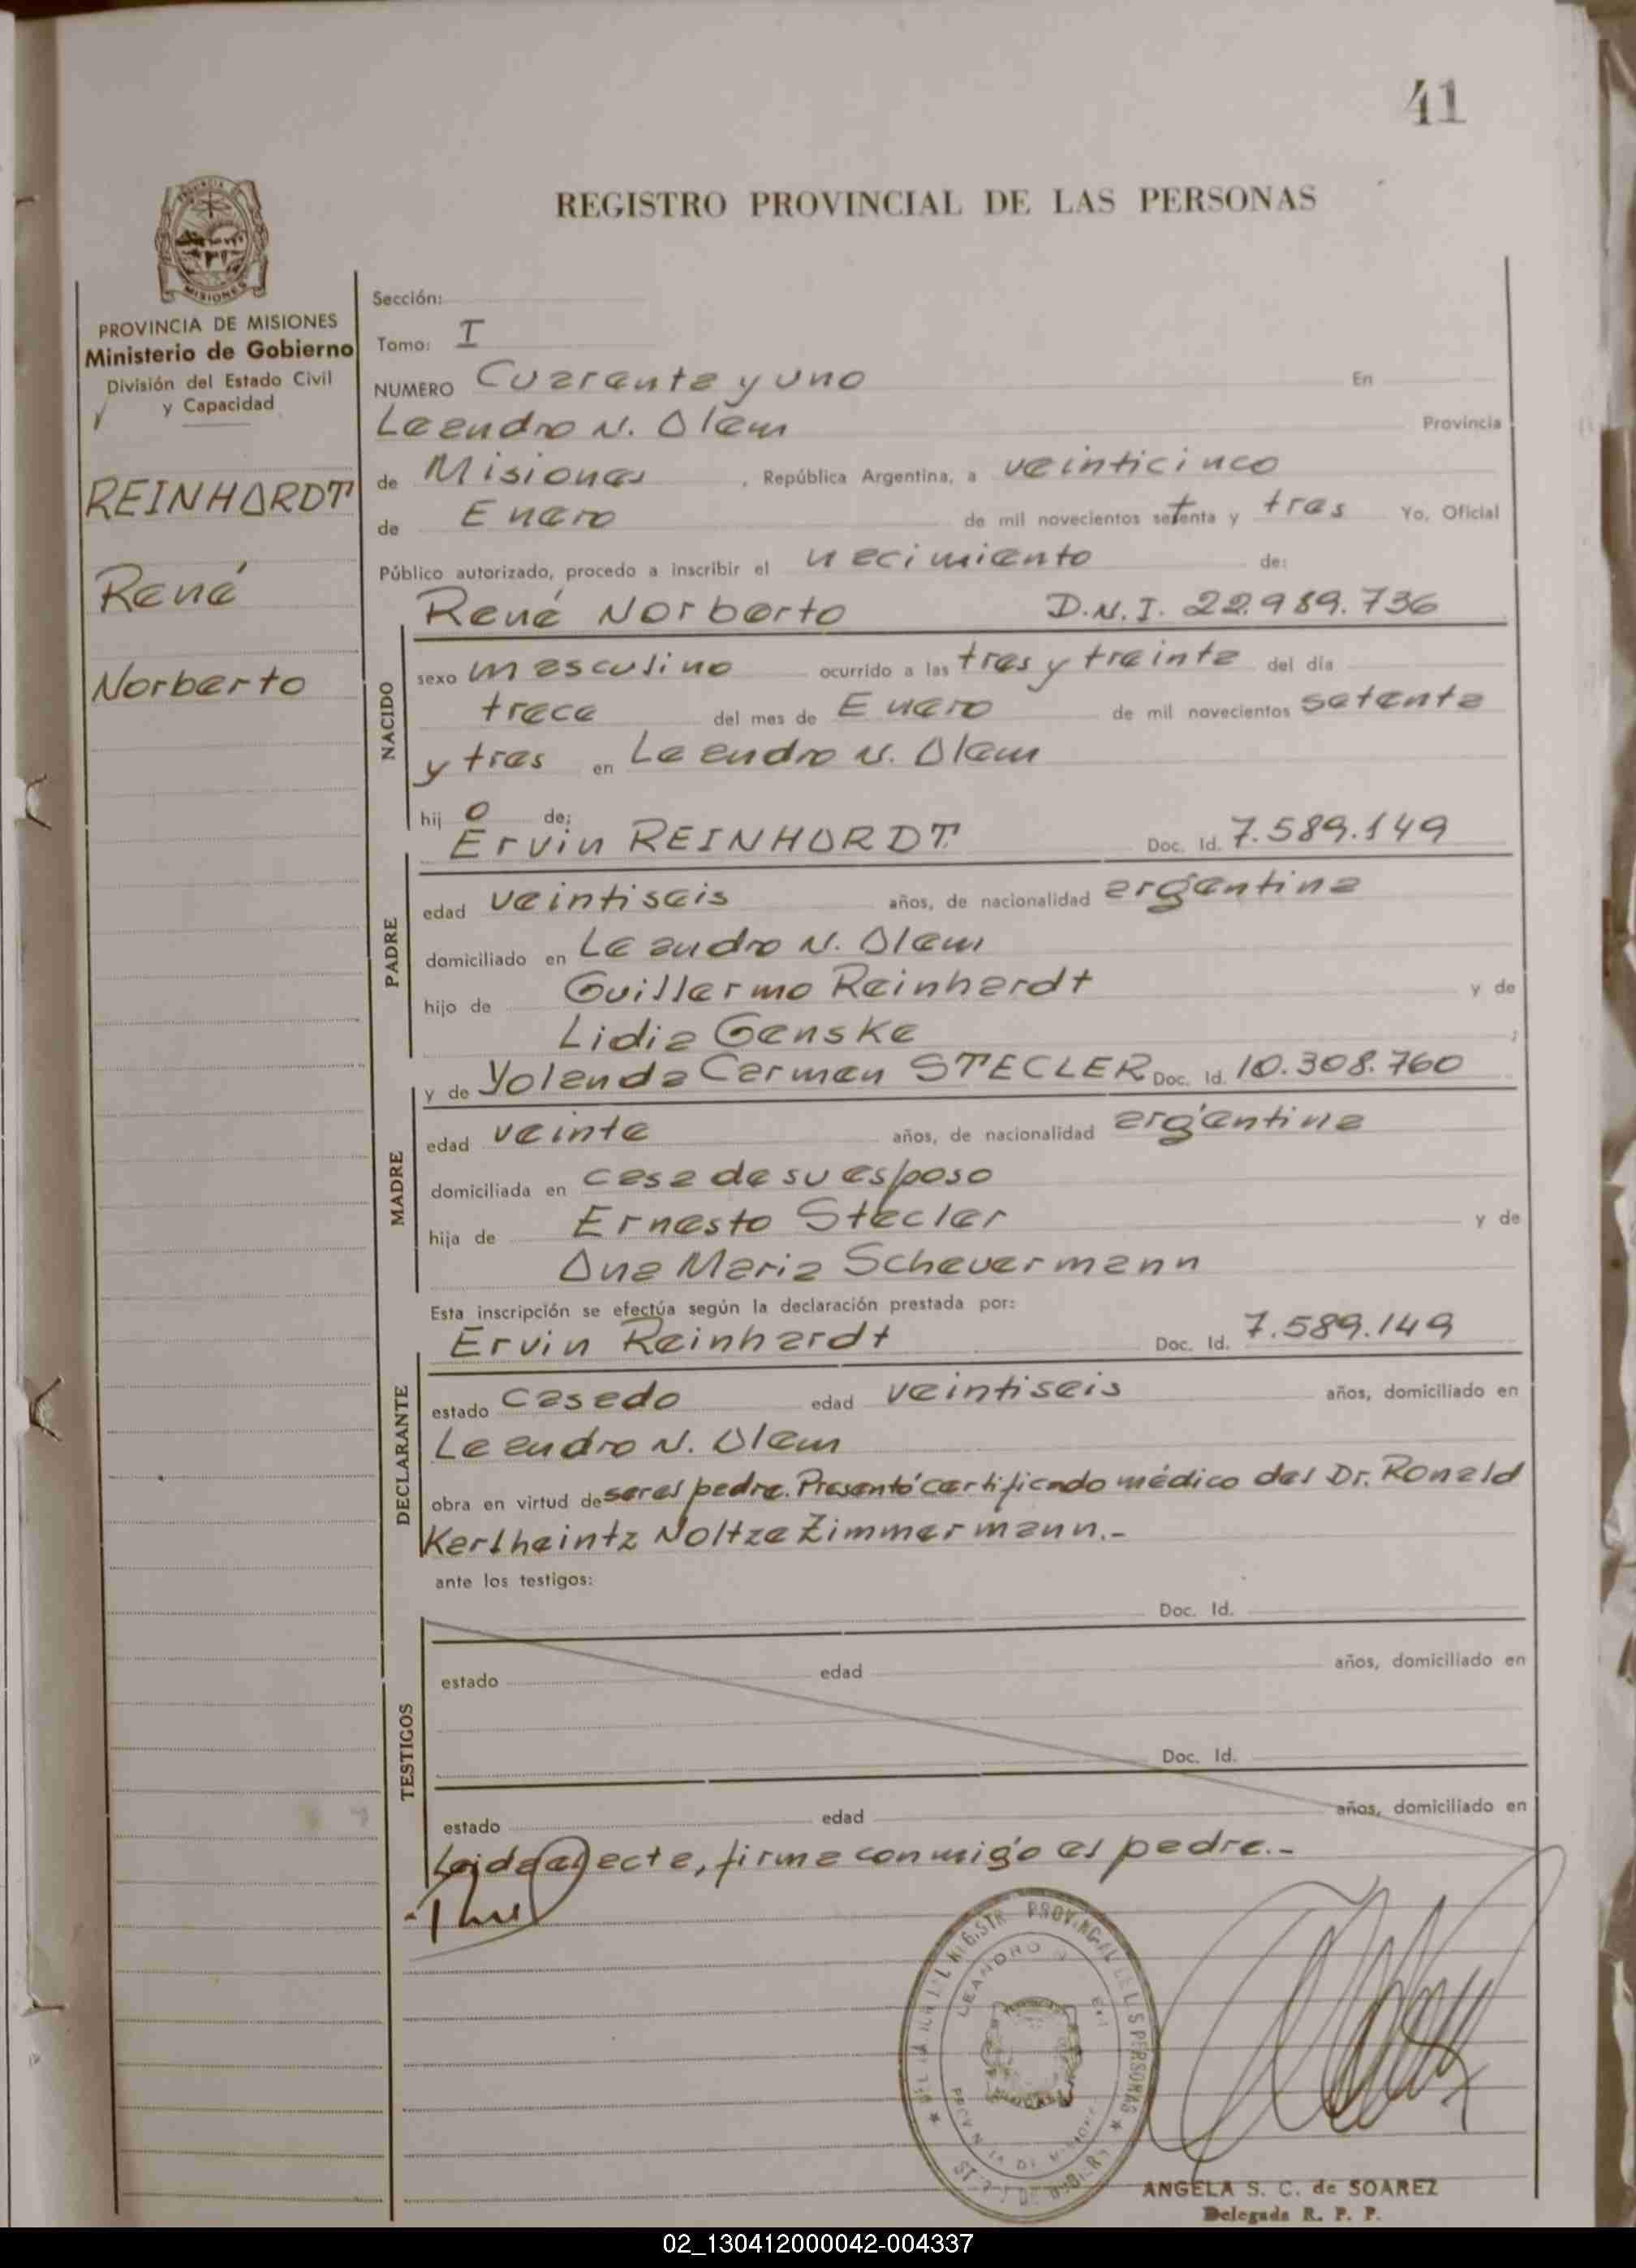 41
REGISTRO PROVINCIAL DE LAS PERSONAS
MISIONES
PROVINCIA DE MISIONES
Ministerio de Gobierno
División del Estado Civil
y Capacidad
REINHARDT
René
Norberto
Sección:
Tomo: I
NUMERO Cuarenta y uno En
Leandro N. Alem Provincia
de Misiones, República Argentina, a veinticinco
de Enero de mil novecientos setenta y tres Yo. Oficial
Público autorizado, procedo a inscribir el nacimiento de:
René Norberto D.N.I. 22.989.736
NACIDO
sexo masculino ocurrido a las tres y treinta del día
trece del mes de Enero de mil novecientos setenta
y tres en Leandro N. Alem
hij o de:
Ervin REINHARDT Doc. Id. 7.589.149
PADRE
edad veintiseis años, de nacionalidad argentina
domiciliado en Leandro N. Alem
hijo de Guillermo Reinhardt y de
Lidia Genske ;
y de Yolanda Carmen STECLER Doc. Id. 10.308.760
MADRE
edad veinte años, de nacionalidad argentina
domiciliada en casa de su esposo
hija de Ernesto Stecler y de
Ana Maria Scheuermann
Esta inscripción se efectúa según la declaración prestada por:
Ervin Reinhardt Doc. Id. 7.589.149
DECLARANTE
estado casado edad veintiseis años, domiciliado en
Leandro N. Alem
obra en virtud de ser el padre. Presentó certificado médico del Dr. Ronald
Karlheintz Noltze Zimmermann.-
ante los testigos:
Doc. Id.
TESTIGOS
estado edad años, domiciliado en
Doc. Id.
estado edad años, domiciliado en
Leida el acta, firma conmigo el padre.-
LEANDRO N
ANGELA S. C. de SOAREZ
Delegada R. P. P.
02_130412000042-004337